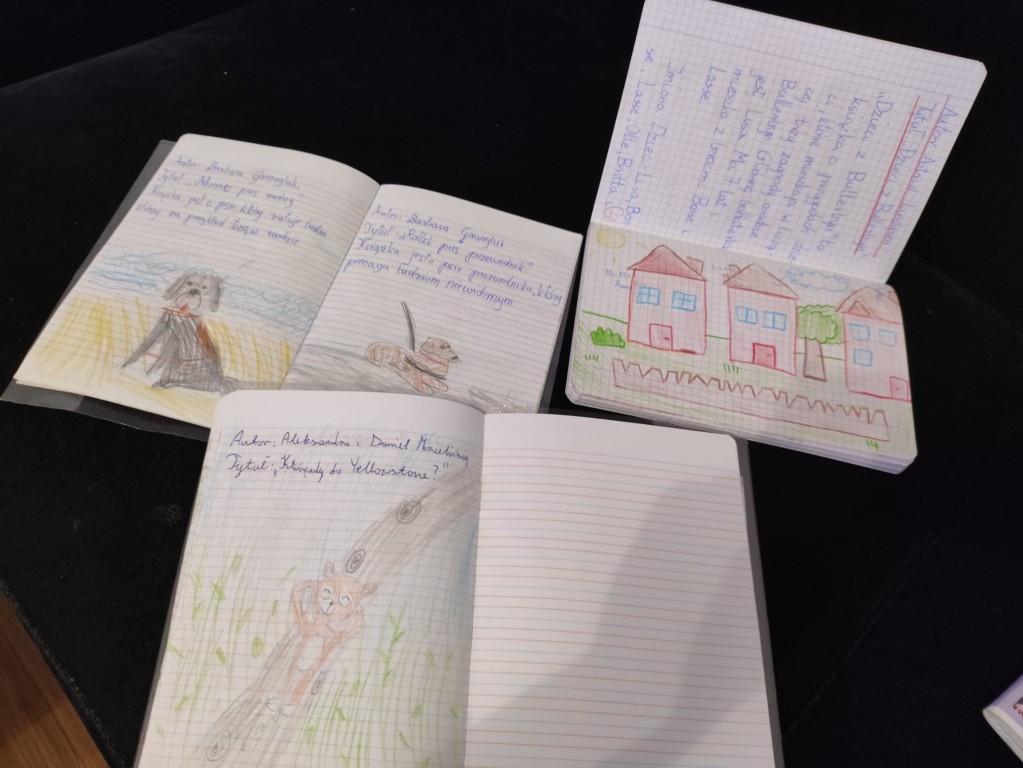 Autor: Barbara Gawryluk
Tytuł: „Nono pies wodny
Książka jest o psie, który ratuje ludzi
którzy na przykład toną w wodzie
Autor: Barbara Gawryluk
Tytuł „Rollek pies przewodnik"
Książka jest o psie przewodniku, który
pomaga ludziom niewidomym
Autor Astrid Lindgren
Tytuł „Dzieci z Bullerbyn"
„Dzieci z Bullerbyn" to
książka o przygodach
które mieszkają w
cej trzy zagrody osadzie
Bullerbyn. Główną bohaterką
jest Lisa. Ma 7 lat i
mieszka z braćmi: Bosse i
Lasse
Imiona Dzieci: Lisa, Bos
se, Lasse, Olle, Britta,
Autor: Aleksandra i Daniel Mizielińscy
Tytuł: „Którędy do Yellowstone?"